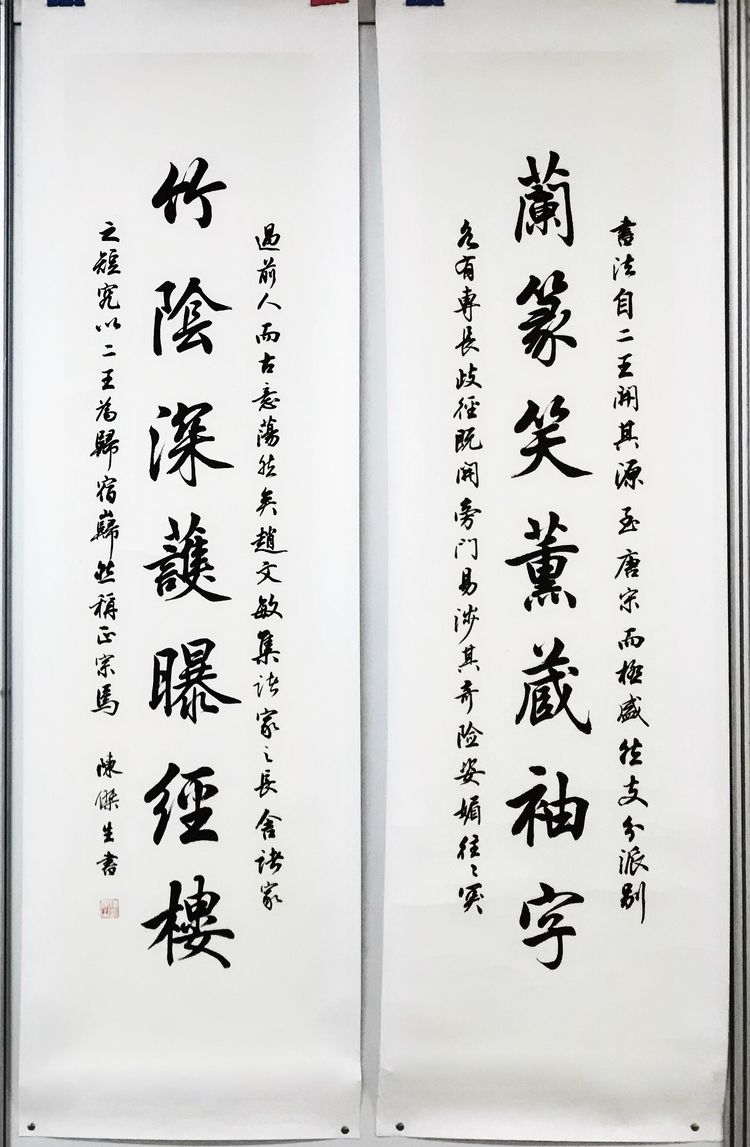 書法自二王開其源至唐宋而極盛然支分派别
蘭篆笑薰蔵袖字
各有專長歧徑既開旁門易涉其奇险姿媚往々突
過前人而古意蕩然矣趙文敏集諸家之長舍諸家
竹陰深護曝經樓
之短究以二王為歸宿巋然稱正宗焉 陳傑生書